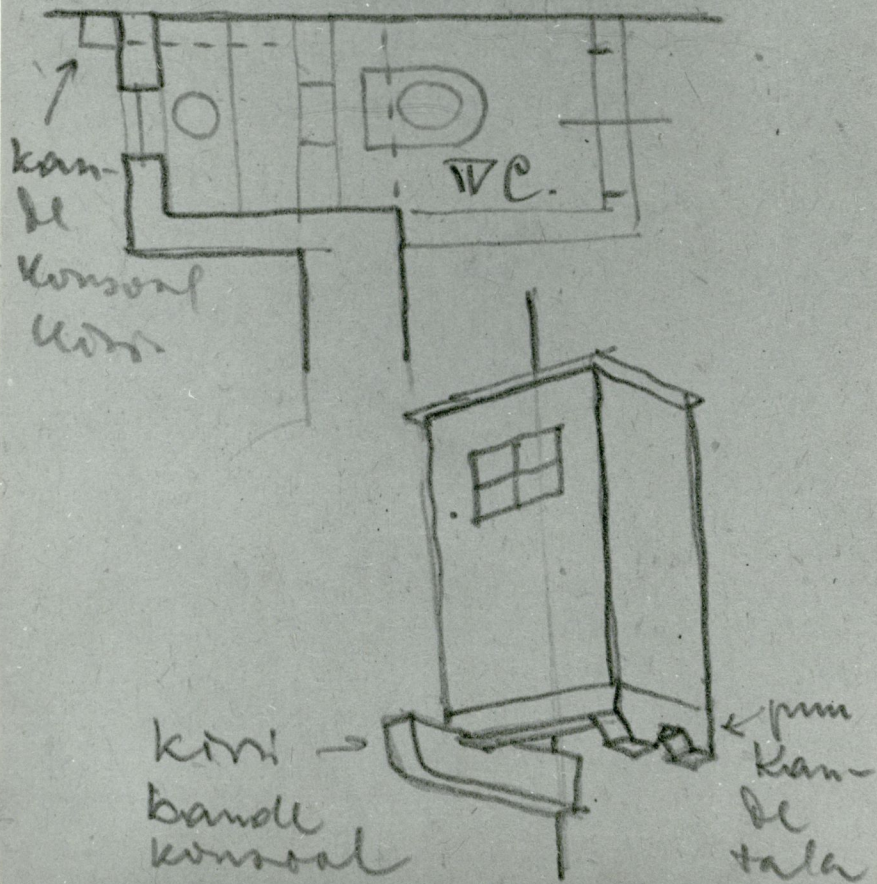 kan-
de
konsool
kivi.
WC.
kivi
kande
konsool
puu
kan-
de
tala